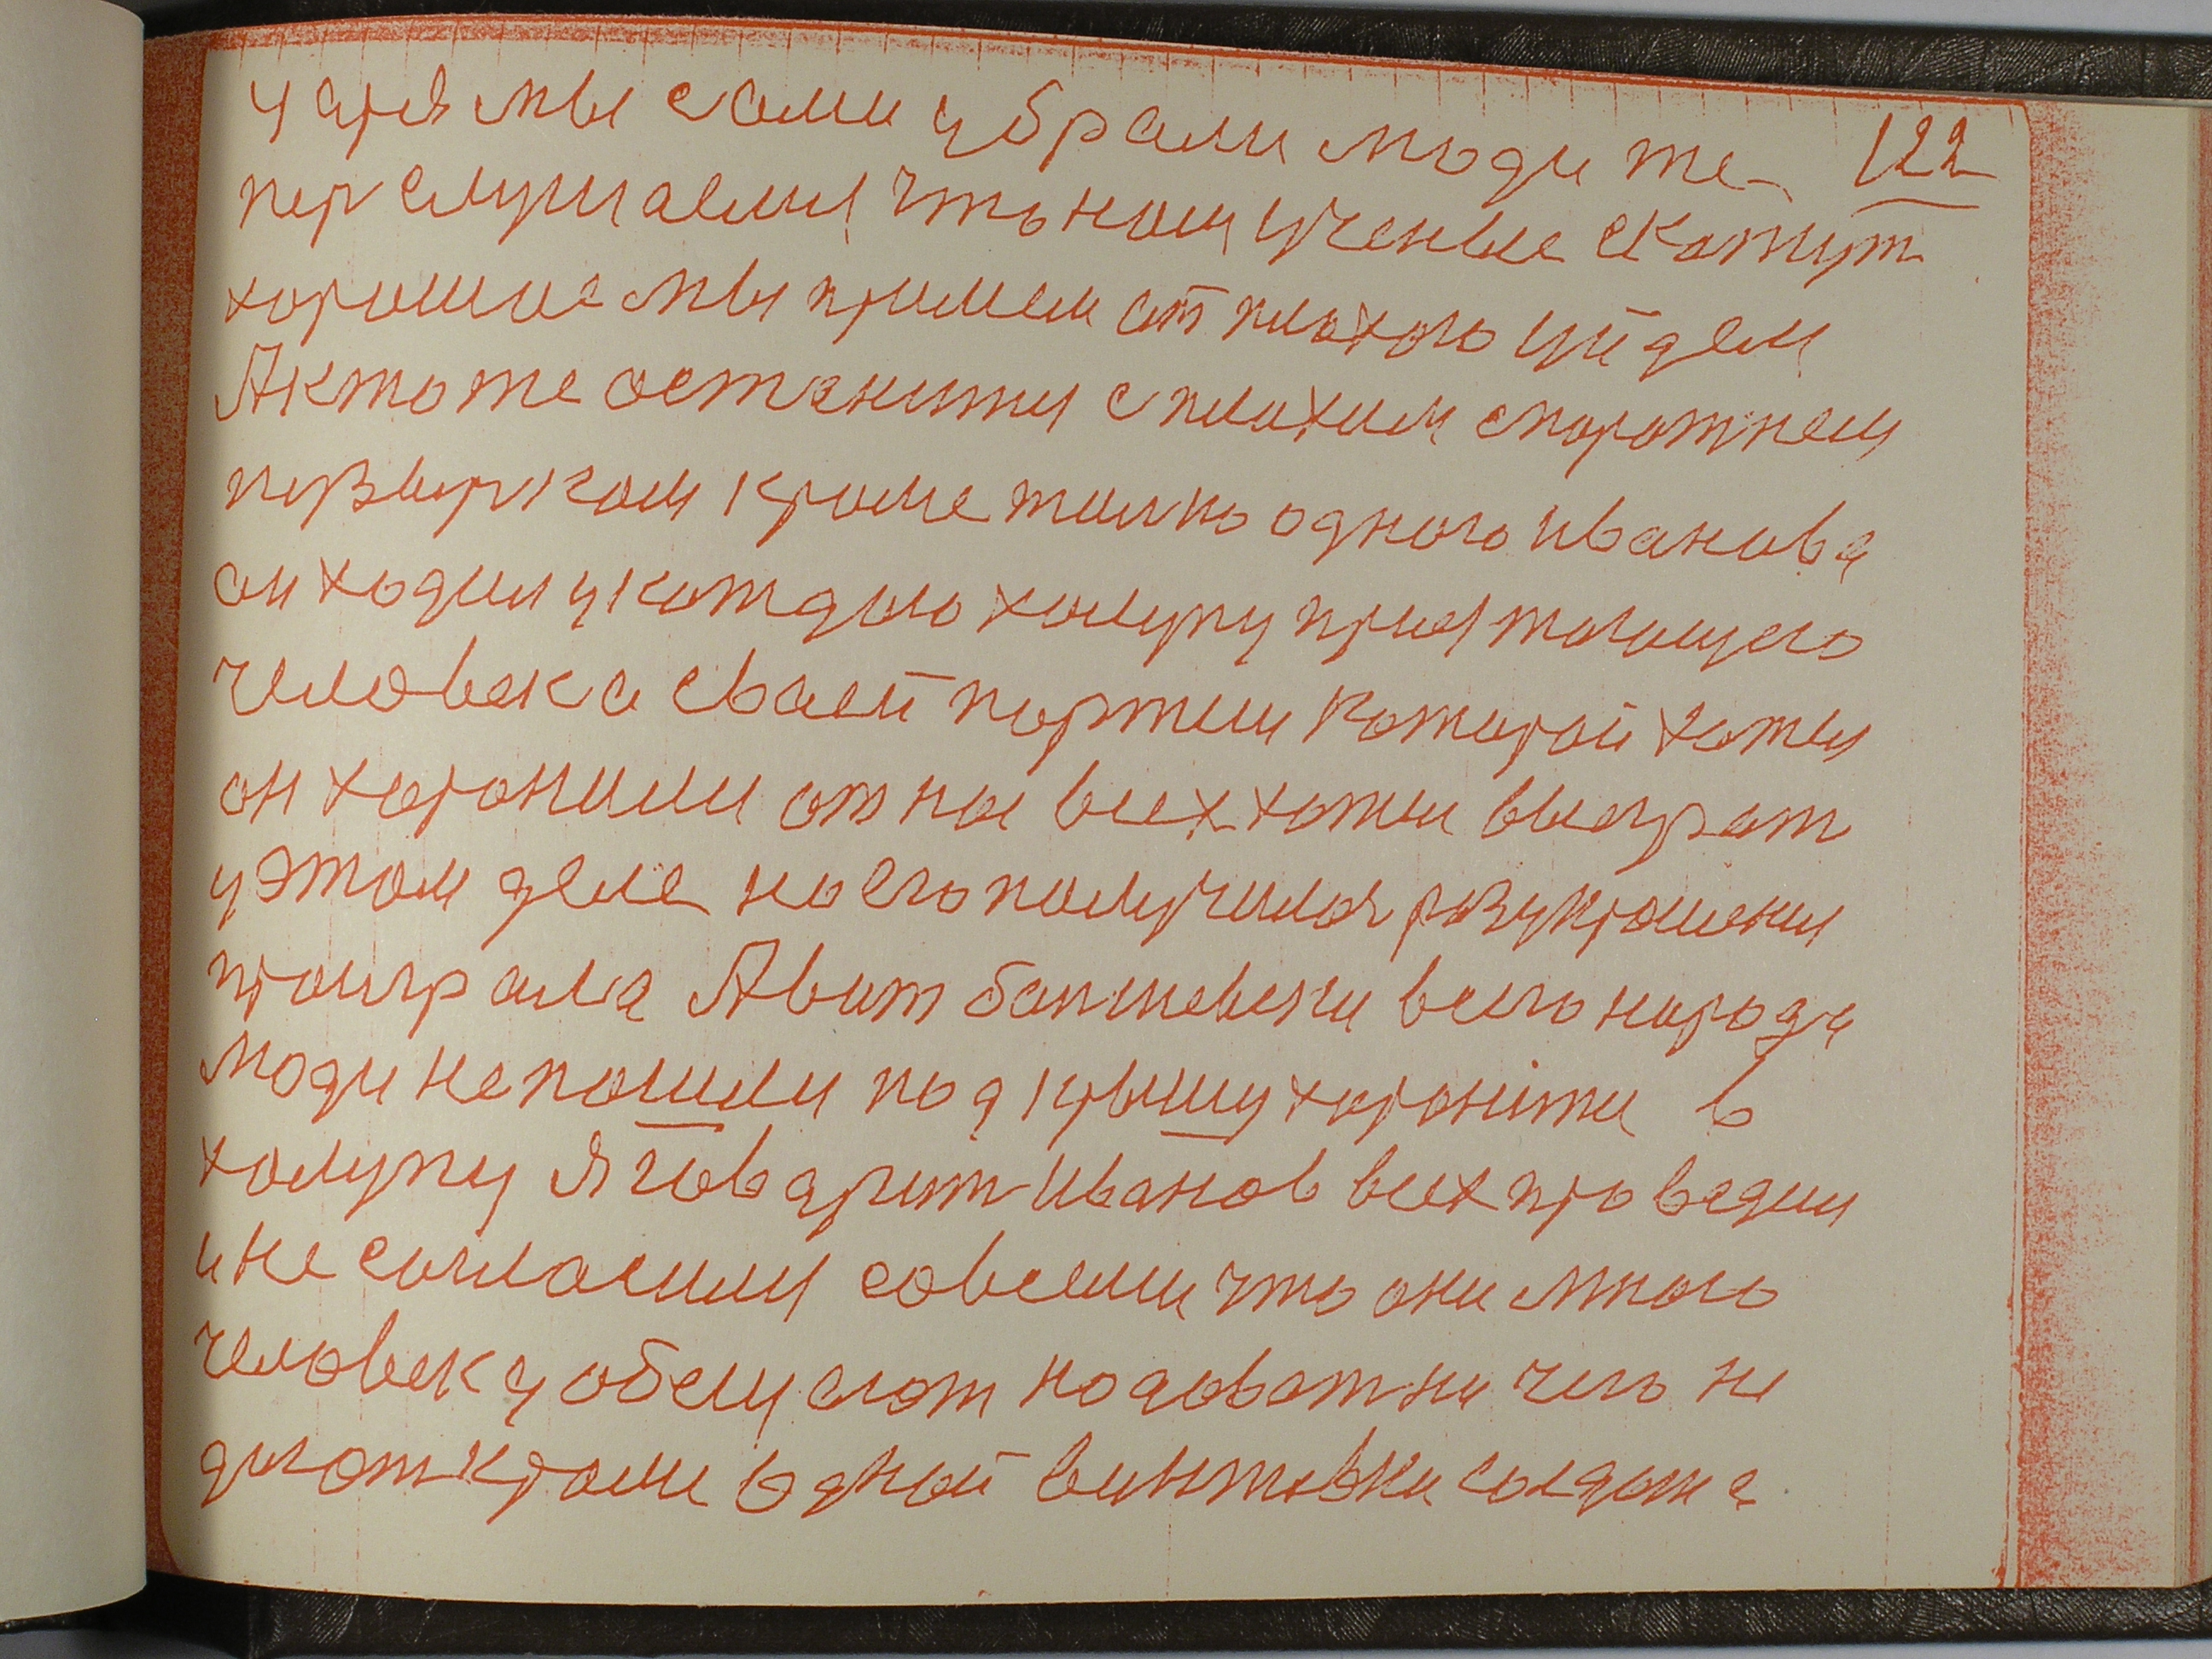 царя мы сами убрали люди те- 122
пер слушаемы что нам ученые скажут
хорошие мы примем от плохого уйдем
А кто же останитца с плохим спорожнем
пузырком кроме только одного Иванова
он ходил у каждыю халупу приятающего
человека сваей партии которой хотел
он хоронили от нас всех хотел выиграт
у этом деле но его получилося разукрашении
проиграла А вит башневски всего народа
люди не пошли под крышу хоронитца в
халупу Я говарит Иванов всех проведил
и не согласили совсеми что они много
человеку обещают надоват ни чего не
дают кроми одной винтовки солдата